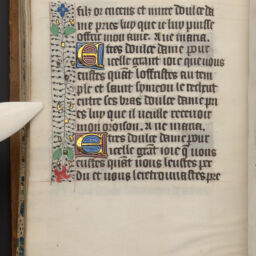 filz or encens et mirre doulce da
me pries luy que ie luy puisse
offrir mon ame. Aue maria.
Tres doulce dame pour
icelle grant ioie que vous
eustes quāt loffristes au tem
ple et saint symeon le rechut
entre ses bras doulce dame pri
es luy que il vueille receuoir
mon oroison. Aue maria.
Tres doulce dame pour
icelle grāt ioie q̄ vous
eustes quāt vous leustes per
du et vous le retrouuastes pre